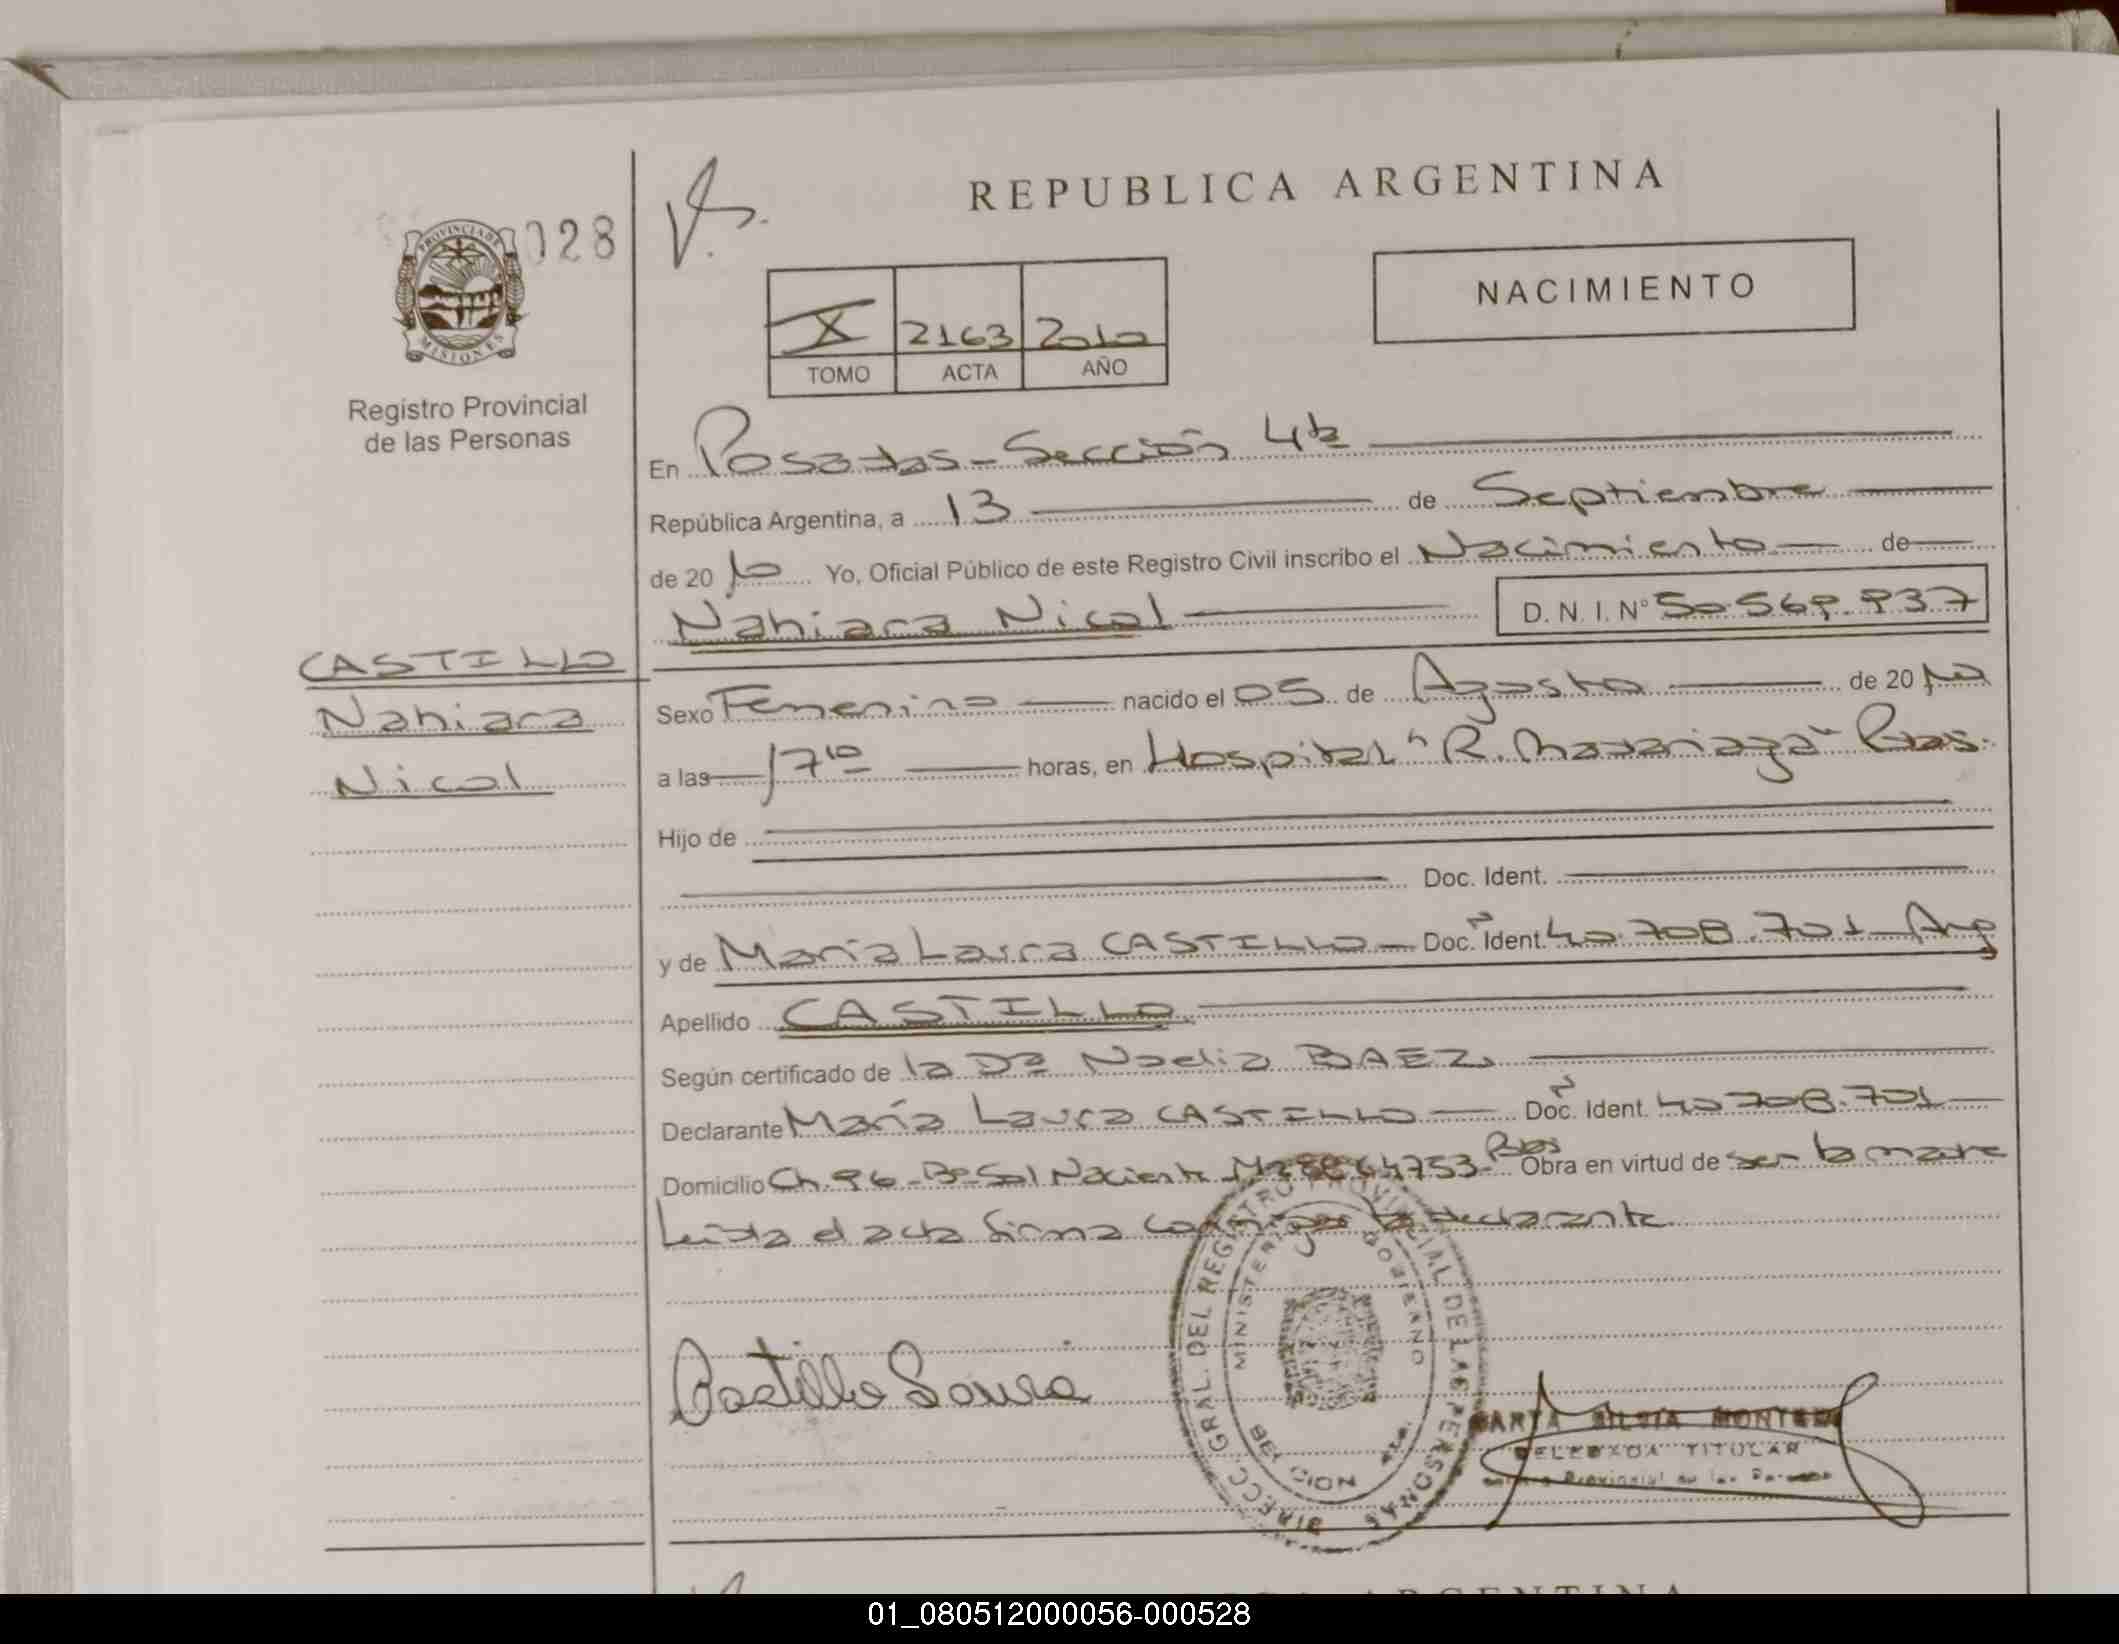 REPUBLICA ARGENTINA
028
PROVINCIA DE
MISIONES
Registro Provincial
de las Personas
NACIMIENTO
X 2163 2010
TOMO ACTA AÑO
En Posadas - Sección 4ta
República Argentina, a 13 de Septiembre
de 2010 Yo, Oficial Público de este Registro Civil inscribo el Nacimiento de
Nahiara Nicol D. N. I. N° 50.569.937
CASTILLO
Nahiara
Nicol
Sexo Femenino nacido el 05 de Agosto de 2010
a las 17 10 horas, en Hospital "R. Madariaga" Pdas.
Hijo de
Doc. Ident.
y de María Laura CASTILLO Doc. Ident. 40.708.701 - Arg
Apellido CASTILLO
Según certificado de la Dra Noelia BAEZ
Declarante María Laura CASTILLO Doc. Ident. 40.708.701
Domicilio Ch. 96 - Bº Sol Naciente 4753 - Pdas Obra en virtud de ser la madre
Leída el acta firma conmigo la declarante
Castillo Laura
DIRECC. GRAL. DEL REGISTRO PROVINCIAL DE LAS PERSONAS
MINISTERIO GOBIERNO
MARTA SILVIA MONTERO
DELEGADA TITULAR
Provincial de las Personas
ARGENTINA
01_080512000056-000528